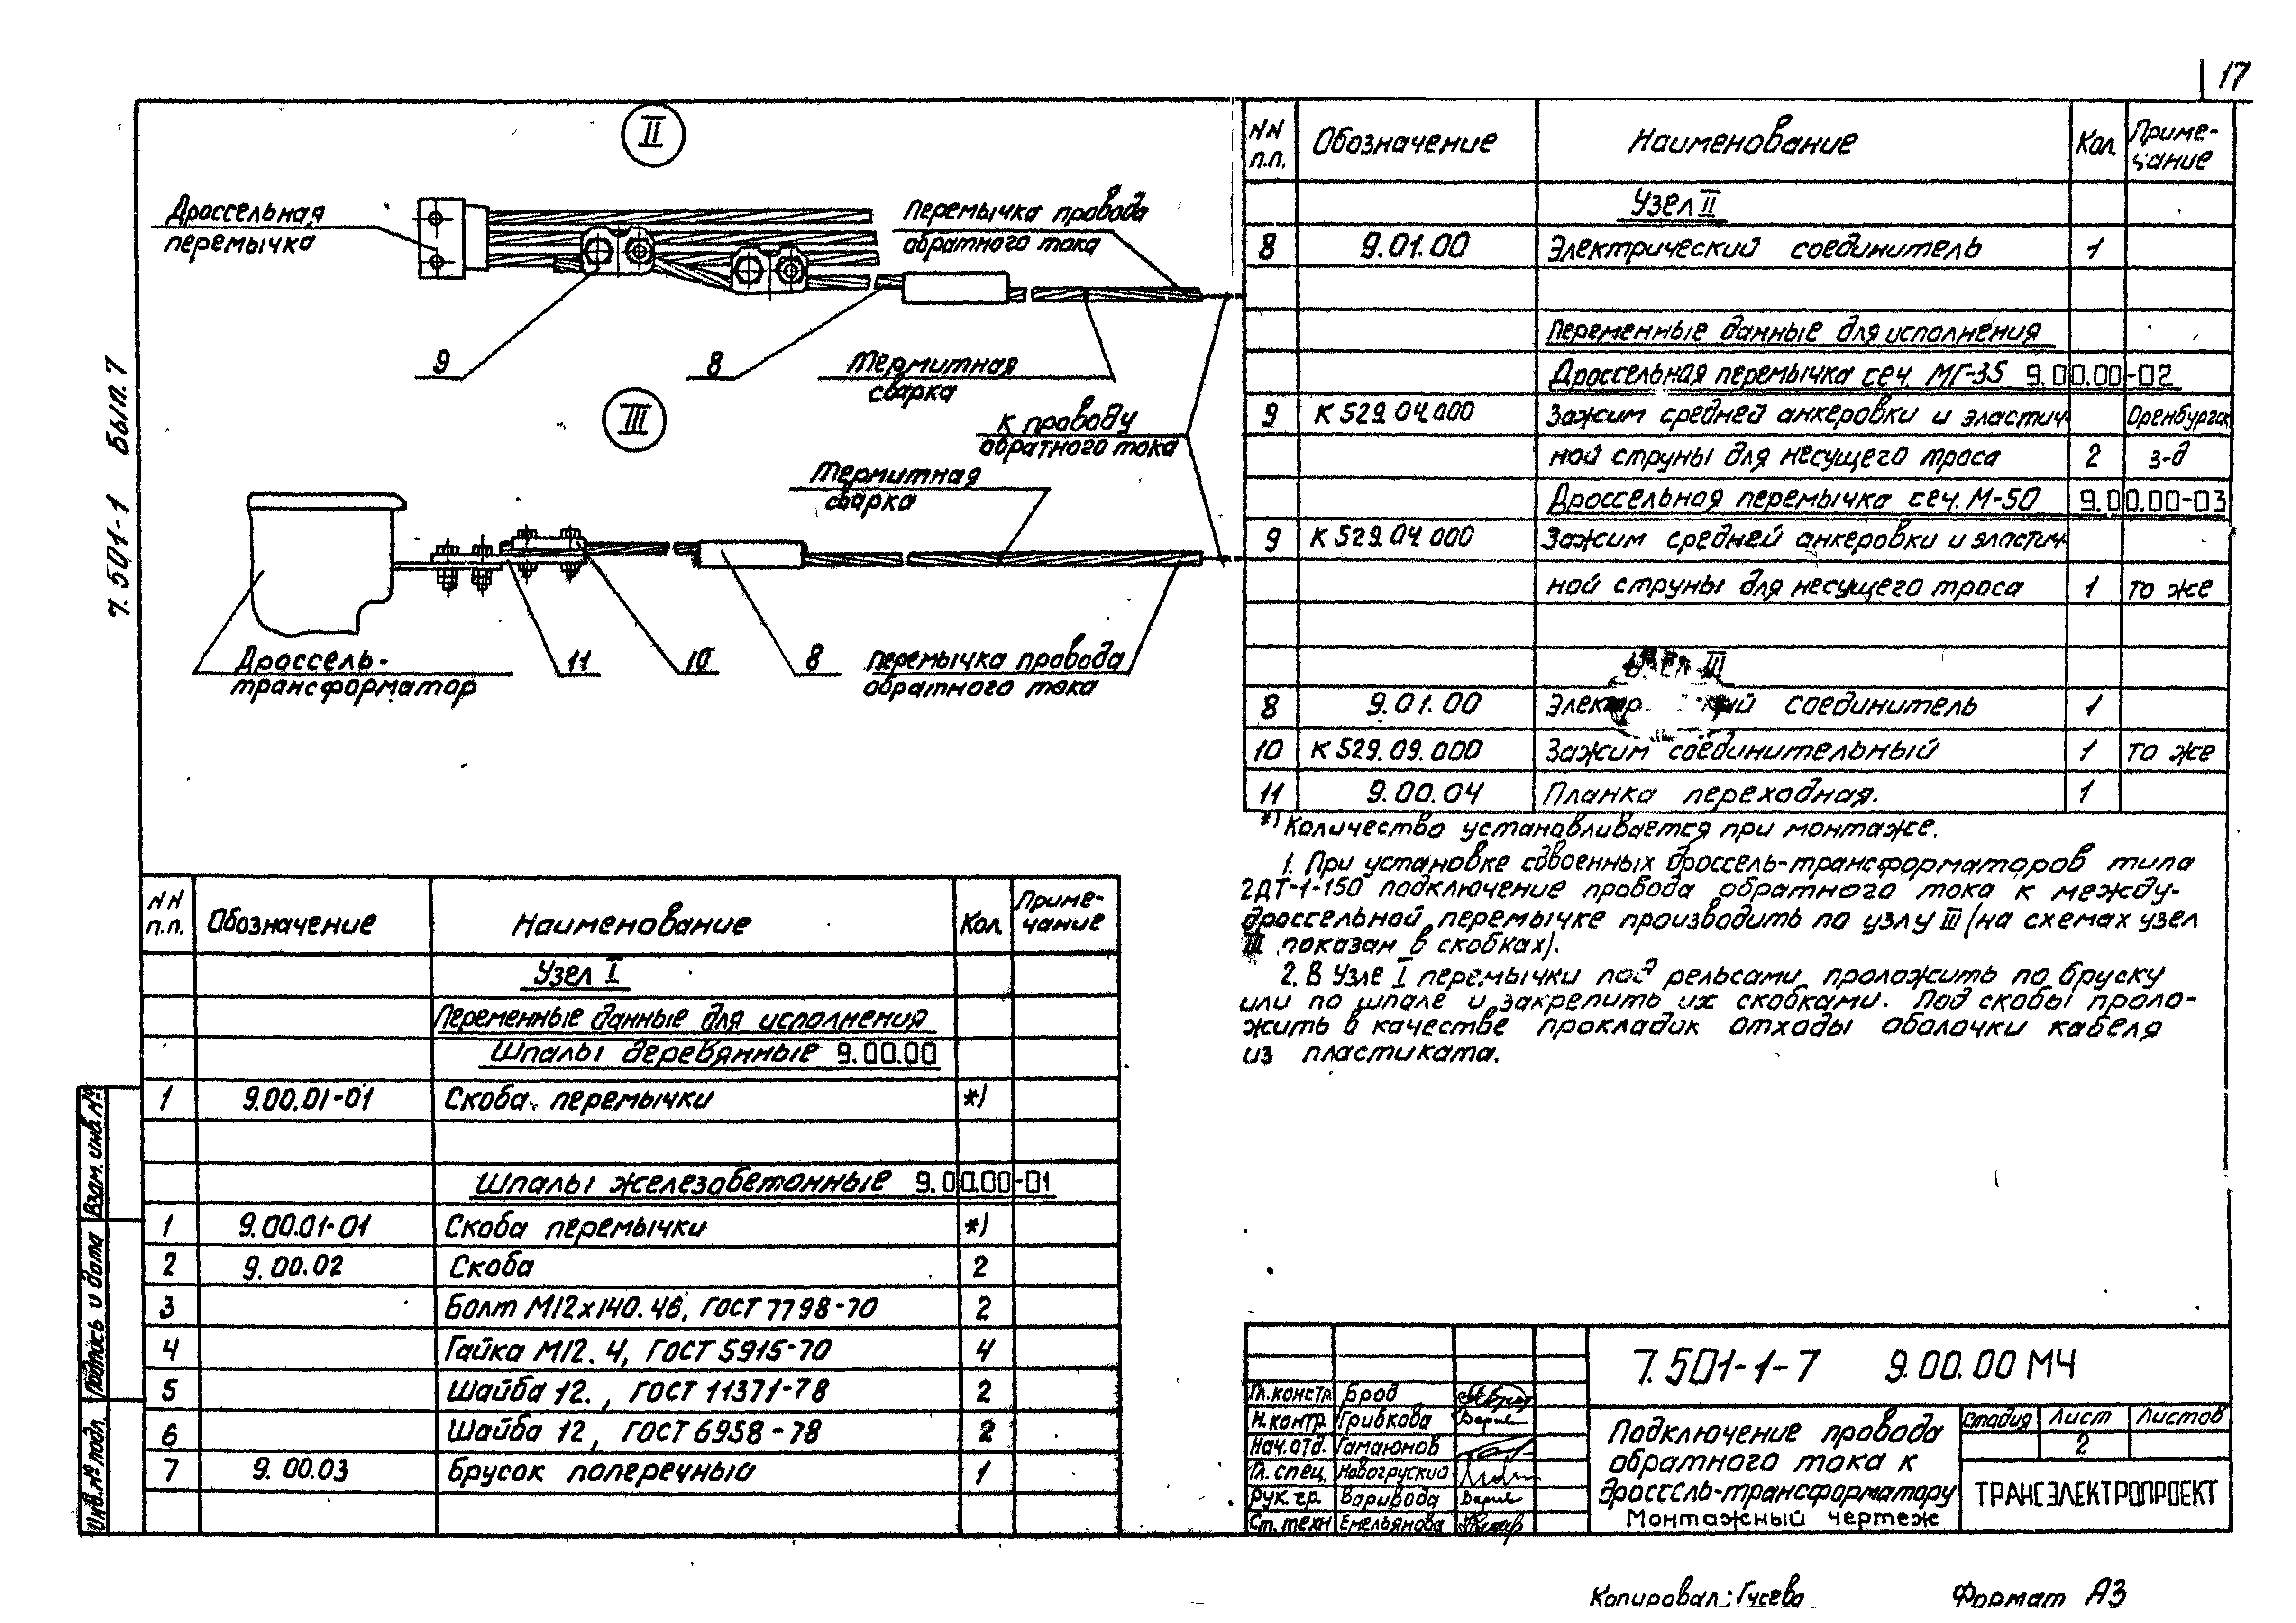 17
7.501-1 Вып.7
II
Дроссельная
перемычка
Перемычка провода
обратного тока
9
8
Термитная
сварка
К проводу
обратного тока
III
Термитная
сварка
Дроссель-
трансформатор
11
10
8
Перемычка провода
обратного тока
NN п.п. Обозначение Наименование Кол. Приме-
чание
Узел II
8 9.01.00 Электрический соединитель 1
Переменные данные для исполнения
Дроссельная перемычка сеч. МГ-35 9.00.00-02
9 К529.04.000 Зажим средней анкеровки и эластич- Оренбургск
ной струны для несущего троса 2 з-д
Дроссельная перемычка сеч. М-50 9.00.00-03
9 К529.04.000 Зажим средней анкеровки и эластич-
ной струны для несущего троса 1 то же
Узел III
8 9.01.00 Электрический соединитель 1
10 К529.09.000 Зажим соединительный 1 то же
11 9.00.04 Планка переходная. 1
*) Количество устанавливается при монтаже.
1. При установке сдвоенных дроссель-трансформаторов типа
2ДТ-1-150 подключение провода обратного тока к между-
дроссельной перемычке производить по узлу III (на схемах узел
III показан в скобках).
2. В Узле I перемычки под рельсами проложить по бруску
или по шпале и закрепить их скобками. Под скобы проло-
жить в качестве прокладок отходы оболочки кабеля
из пластиката.
NN п.п. Обозначение Наименование Кол. Приме-
чание
Узел I
Переменные данные для исполнения
Шпалы деревянные 9.00.00
1 9.00.01-01 Скоба перемычки *)
Шпалы железобетонные 9.00.00-01
1 9.00.01-01 Скоба перемычки *)
2 9.00.02 Скоба 2
3 Болт М12х140.46, ГОСТ 7798-70 2
4 Гайка М12.4, ГОСТ 5915-70 4
5 Шайба 12., ГОСТ 11371-78 2
6 Шайба 12, ГОСТ 6958-78 2
7 9.00.03 Брусок поперечный 1
Инв.№ подл Подпись и дата Взам. инв.№
7.501-1-7 9.00.00 МЧ
Гл.констр. Брод
Н.контр. Грибкова
Нач.отд. Гамаюнов
Гл. спец. Новогруский
Рук.гр. Варивода
Ст.техн Емельянова
Подключение провода
обратного тока к
дроссель-трансформатору
Монтажный чертеж
Стадия Лист Листов
2
ТРАНСЭЛЕКТРОПРОЕКТ
Копировал: Гусева Формат А3